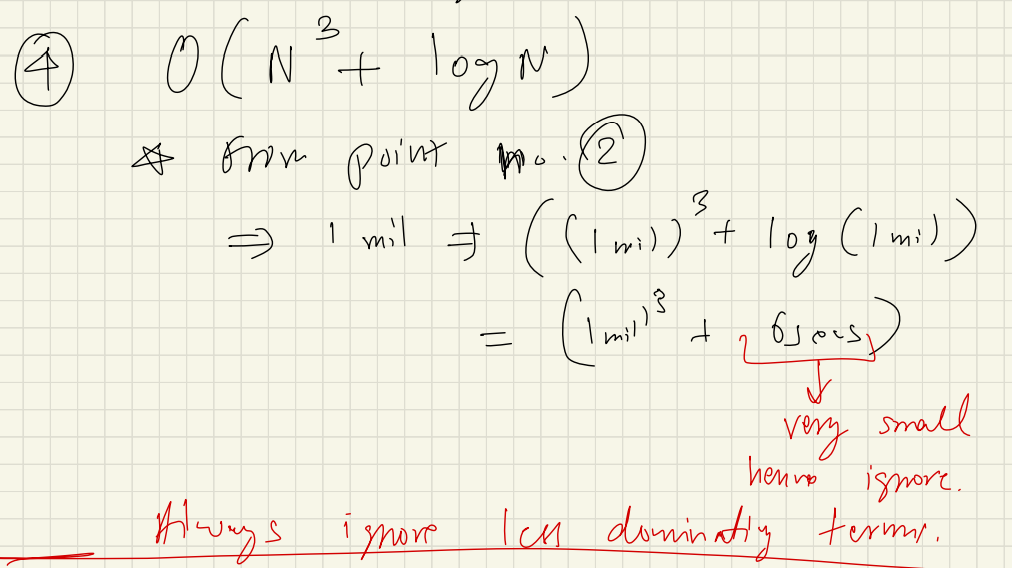 ④ O(N³ + log N)
☆ from point no. ②
⇒ 1 mil ⇒ ((1 mil)³ + log (1 mil))
= (1 mil)³ + 6secs)
very small
hence ignore.
Always ignore less dominating terms.